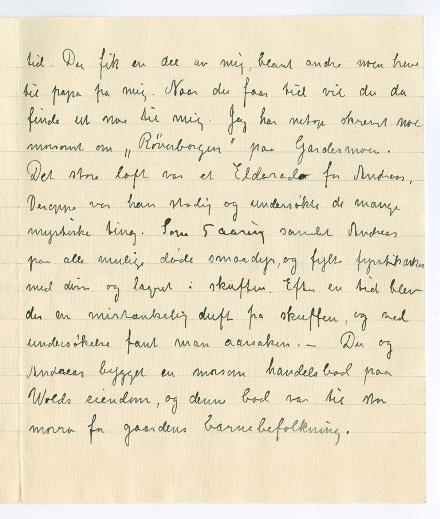 tid. Du fik en del av mig, blant andre noen breve
til papa fra mig. Naar du faar tid vil du da
finde ut noe til mig. Jeg har netop skrevet noe
morsomt om „Röverborgen" paa Gardermoen.
Det store loft var et Eldorado for Andreas,
Deroppe var han stadig og undersøkte de mange
mystiske ting. Som 5 aaring samlet Andreas
paa alle mulige døde smaadyr, og fyldte fyrstikæsker
med dem og lagret i skuffen. Efter en tid blev
der en mistænkelig duft fra skuffen, og ved
undersøkelse fant man aarsaken. — Du og
Andreas bygget en morsom handelsbod paa
Wolds eiendom, og denne bod var til stor
morro for gaardens barnebefolkning.